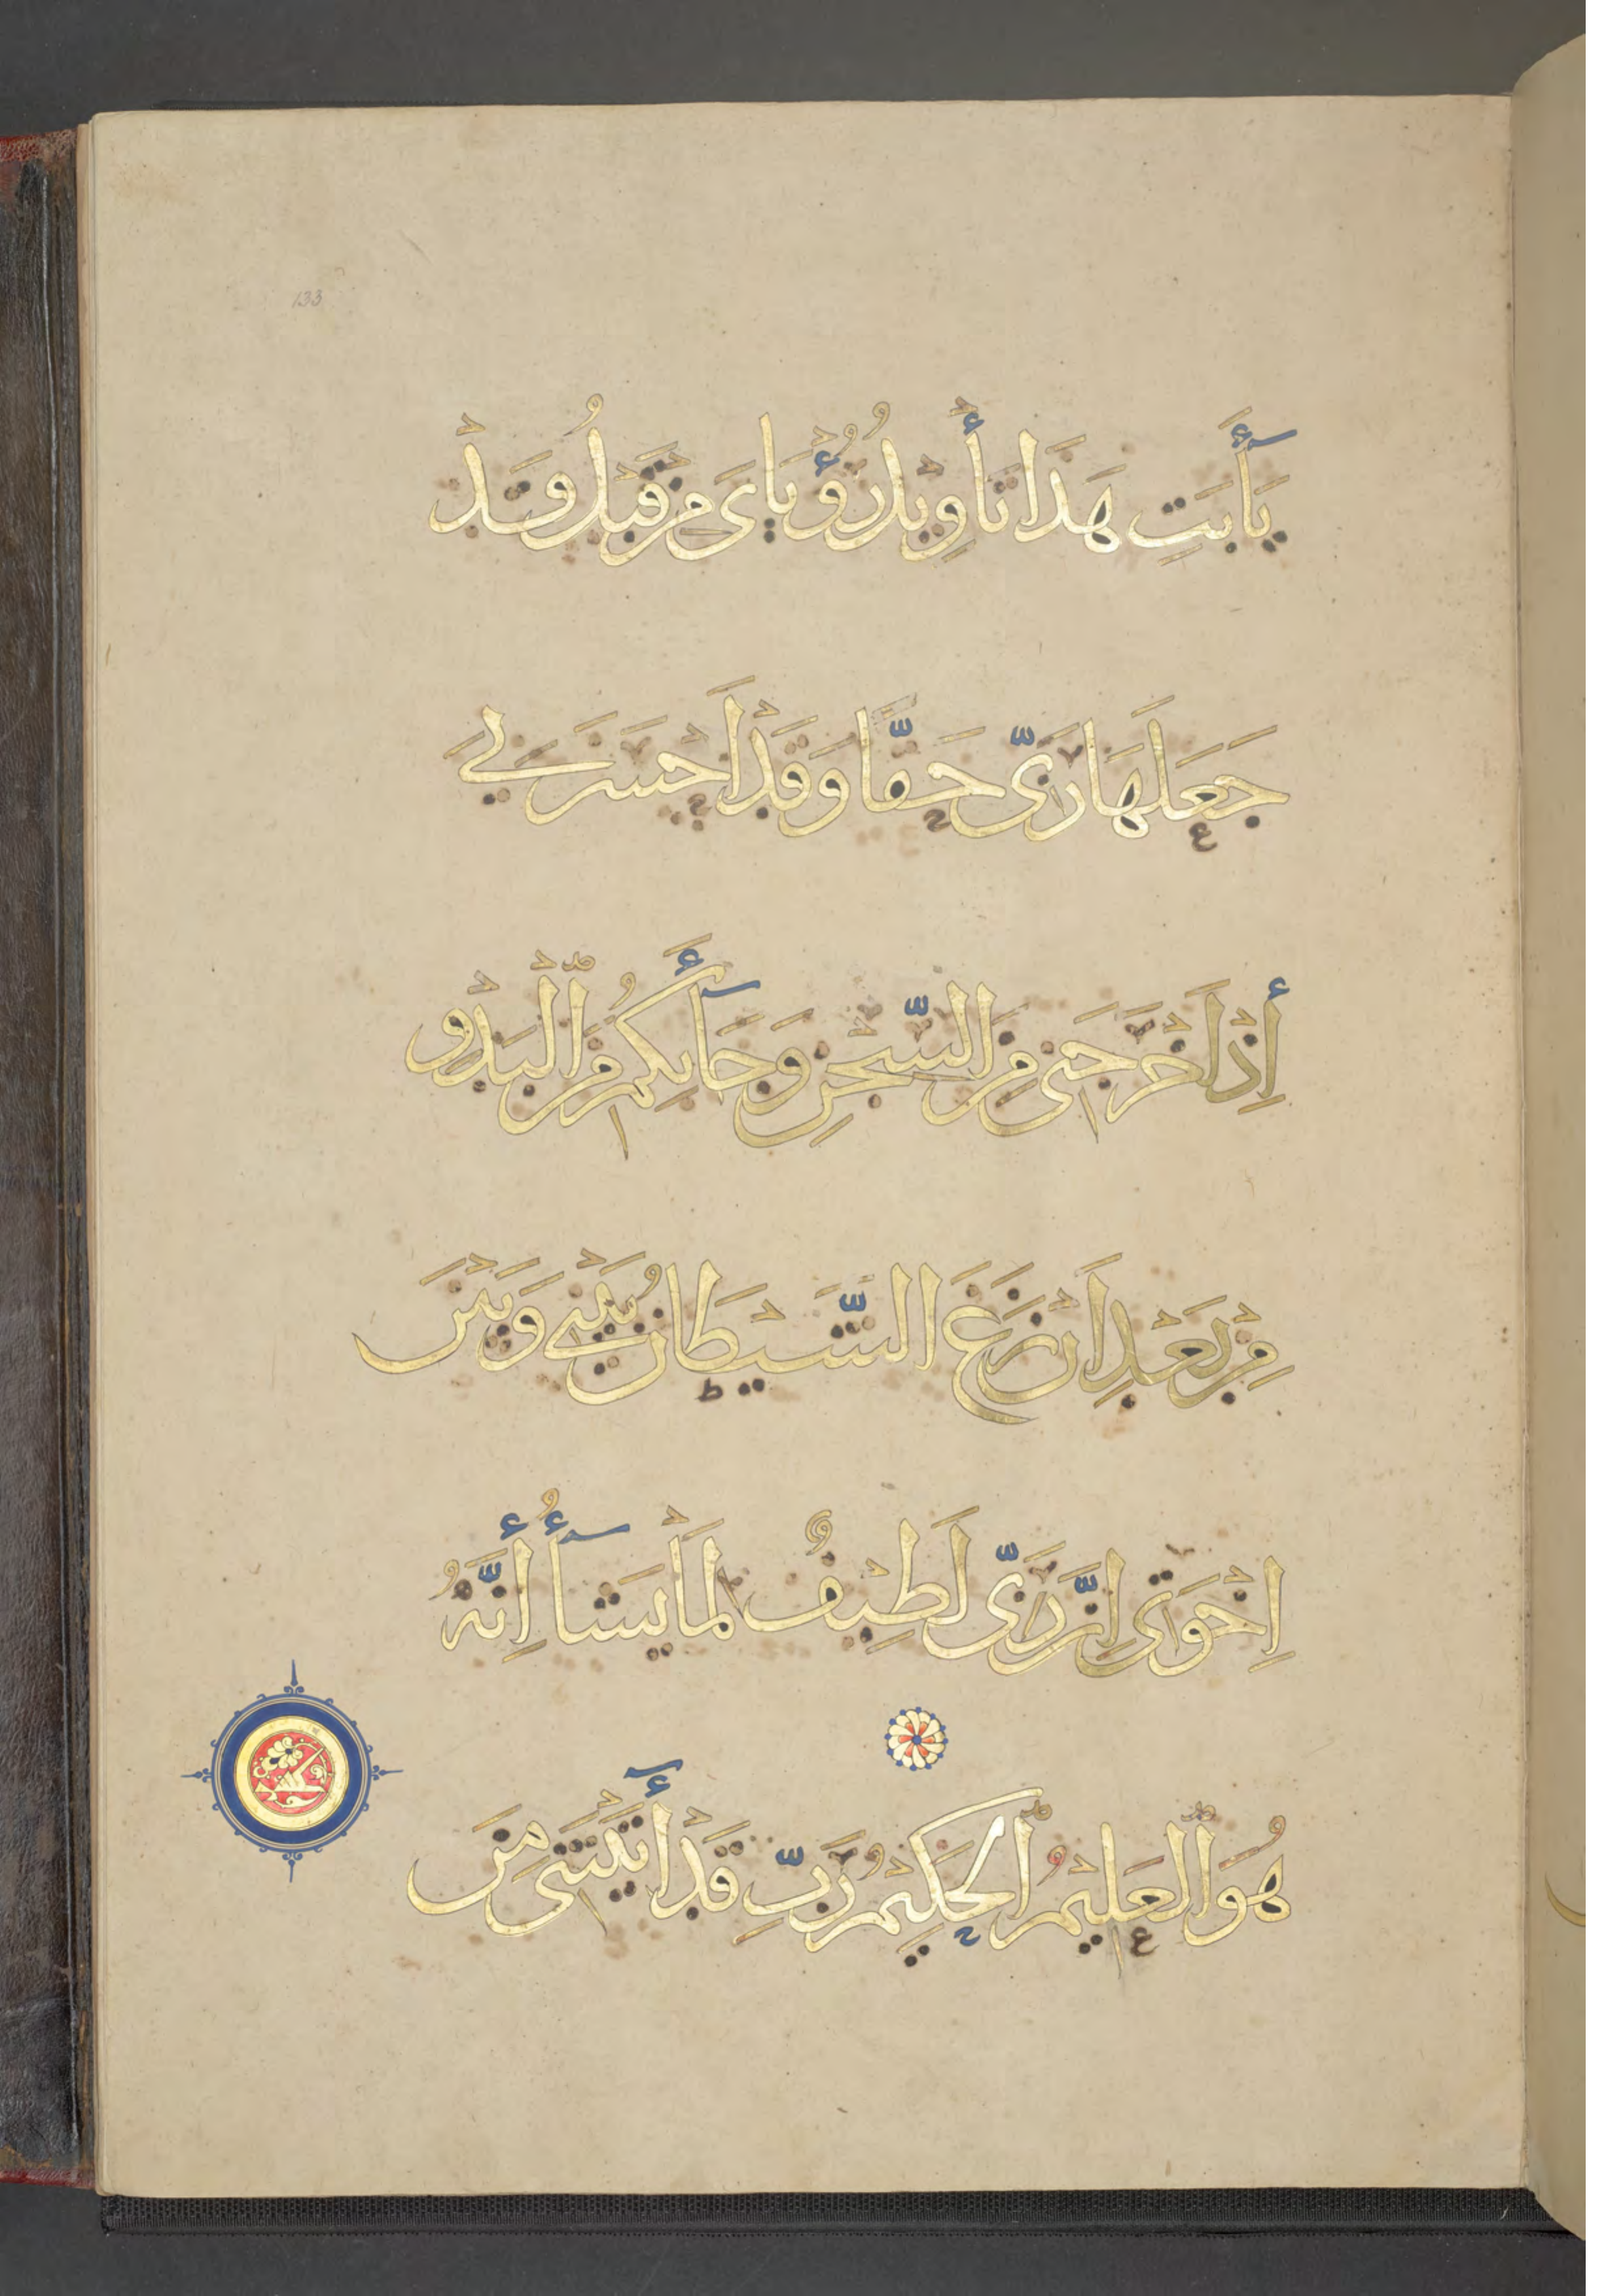 133
يَٰأَبَتِ هَذَا تَأْوِيلُ رُؤْيَاىَ مِن قَبْلُ وَقَدْ
جَعَلَهَا رَبِّى حَقًّا وَقَدْ أَحْسَنَ بِى
إِذْ أَخْرَجَنِى مِنَ السِّجْنِ وَجَآءَ بِكُم مِّنَ الْبَدْوِ
مِنْ بَعْدِ أَن نَزَغَ الشَّيْطَانُ بَيْنِى وَبَيْنَ
إِخْوَتِى إِنَّ رَبِّى لَطِيفٌ لِمَا يَشَآءُ إِنَّهُ
هُوَ الْعَلِيمُ الْحَكِيمُ رَبِّ قَدْ آتَيْتَنِى مِنَ